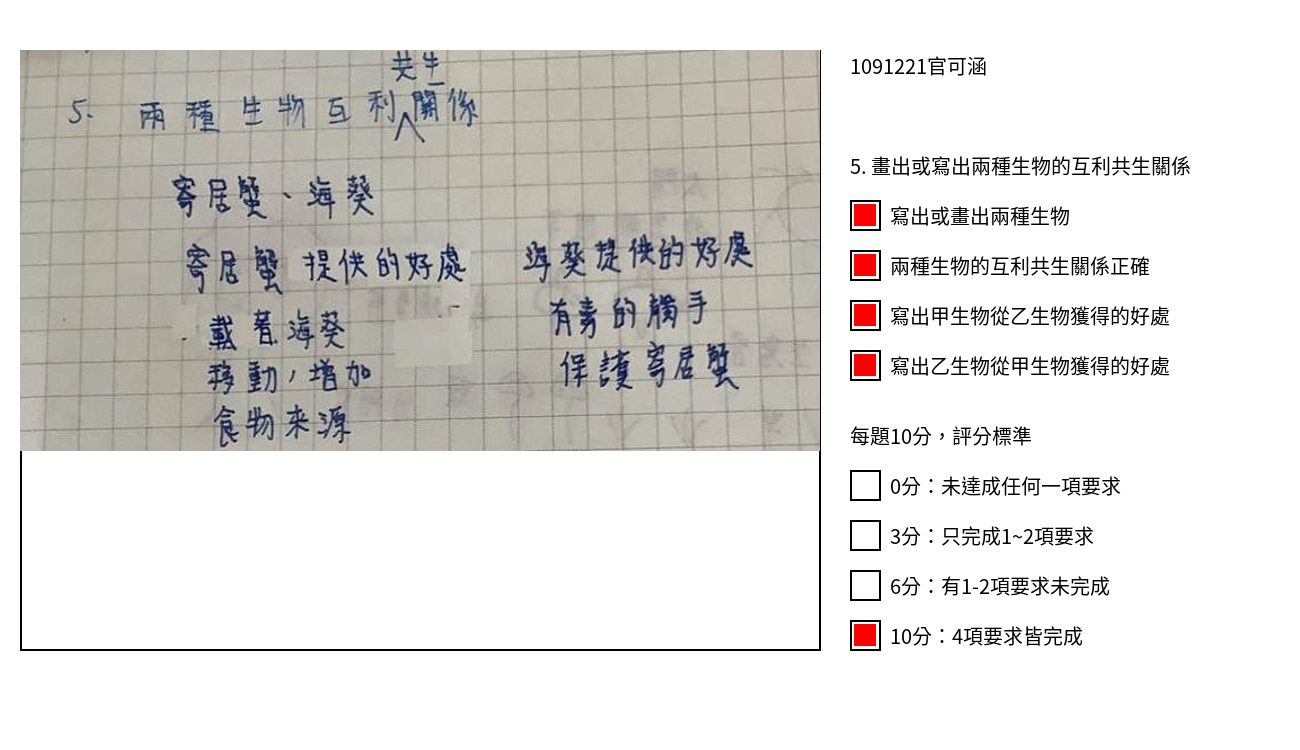 共生
5. 兩種生物互利關係
寄居蟹、海葵
寄居蟹 提供的好處
戴著海葵
移動,增加
食物來源
海葵提供的好處
有毒的觸手
保護寄居蟹
1091221官可涵
5. 畫出或寫出兩種生物的互利共生關係
寫出或畫出兩種生物
兩種生物的互利共生關係正確
寫出甲生物從乙生物獲得的好處
寫出乙生物從甲生物獲得的好處
每題10分,評分標準
0分:未達成任何一項要求
3分:只完成1~2項要求
6分:有1-2項要求未完成
10分:4項要求皆完成